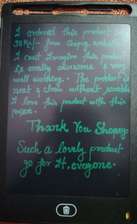 I ordered this product
from
I can't imagine this product
is really awesome & very
well working. The product is
neat & clean without
I love this product with this
Thank You Shopsy
Such a lovely product
go for it, everyone.